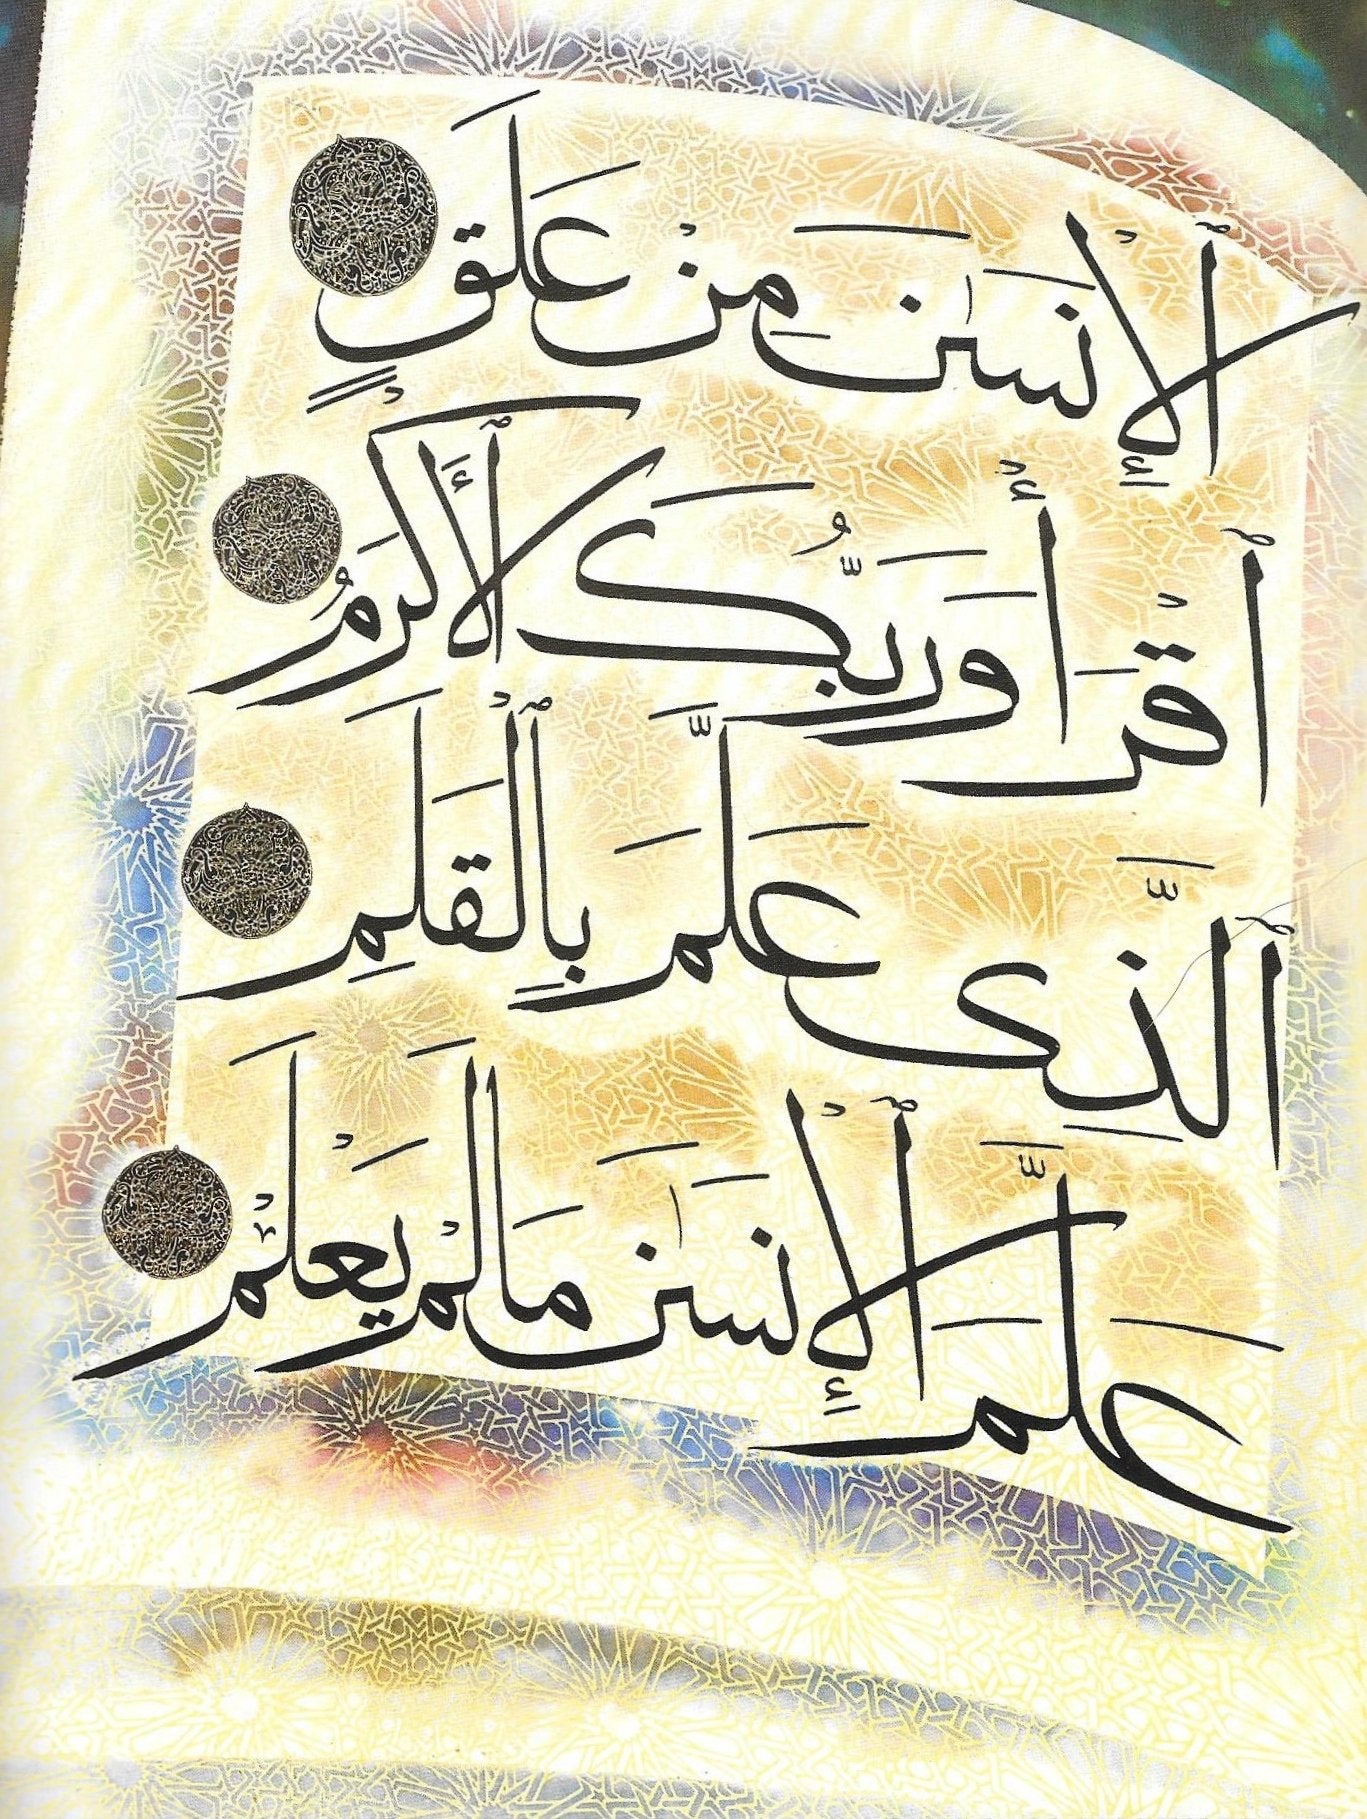 ٱلْإِنسَٰنَ مِنْ عَلَقٍ
ٱقْرَأْ وَرَبُّكَ ٱلْأَكْرَمُ
ٱلَّذِى عَلَّمَ بِٱلْقَلَمِ
عَلَّمَ ٱلْإِنسَٰنَ مَا لَمْ يَعْلَمْ